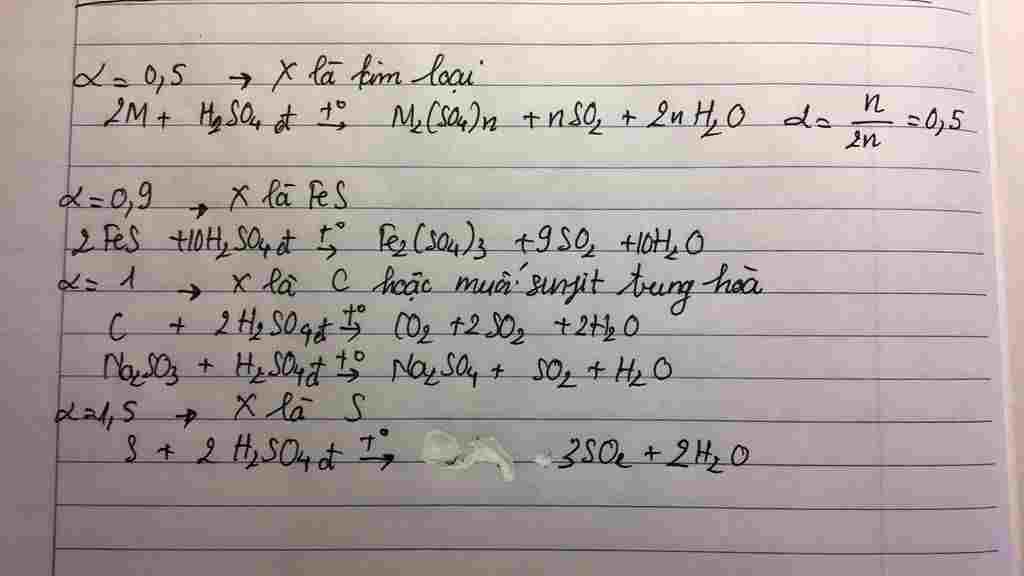 α = 0,5 → X là kim loại
2M + H₂SO₄ đ t°→ M₂(SO₄)n + nSO₂ + 2nH₂O α = n/2n = 0,5
α = 0,9 → X là FeS
2FeS + 10H₂SO₄ đ t°→ Fe₂(SO₄)₃ + 9SO₂ + 10H₂O
α = 1 → X là C hoặc muối sunfit trung hoà
C + 2H₂SO₄ đ t°→ CO₂ + 2SO₂ + 2H₂O
Na₂SO₃ + H₂SO₄ đ t°→ Na₂SO₄ + SO₂ + H₂O
α = 1,5 → X là S
S + 2H₂SO₄ đ t°→ 3SO₂ + 2H₂O